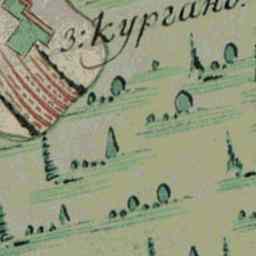 з: Курганъ.